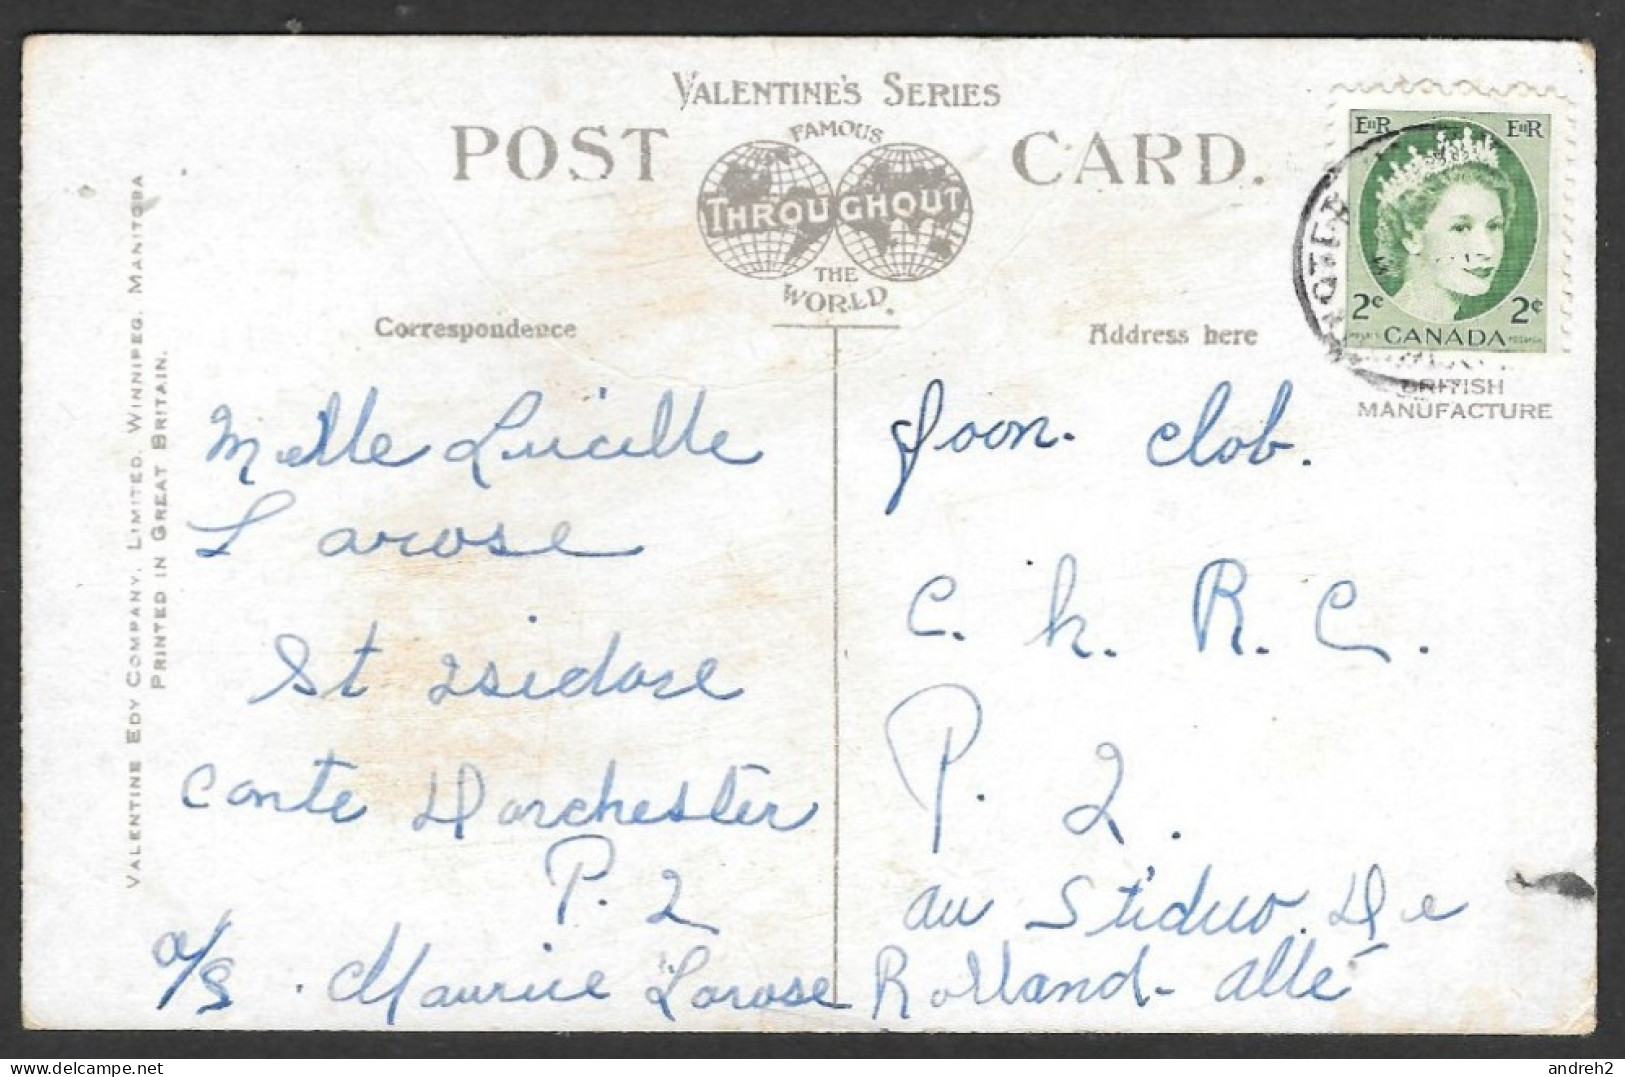 VALENTINE'S SERIES
POST CARD.
FAMOUS
THROUGHOUT
THE
WORLD.
Correspondence
Address here
E II R E II R
2¢ 2¢
CANADA
BRITISH
MANUFACTURE
VALENTINE EDY COMPANY, LIMITED. WINNIPEG. MANITOBA
PRINTED IN GREAT BRITAIN.
Melle Lucille
Larose
St Isidore
Conte Dorchester
P. 2
a/s. Maurice Larose
Joon. Clob.
C. h. R. C.
P. 2.
au Stiduo. De
Rolland- allé
andreh2